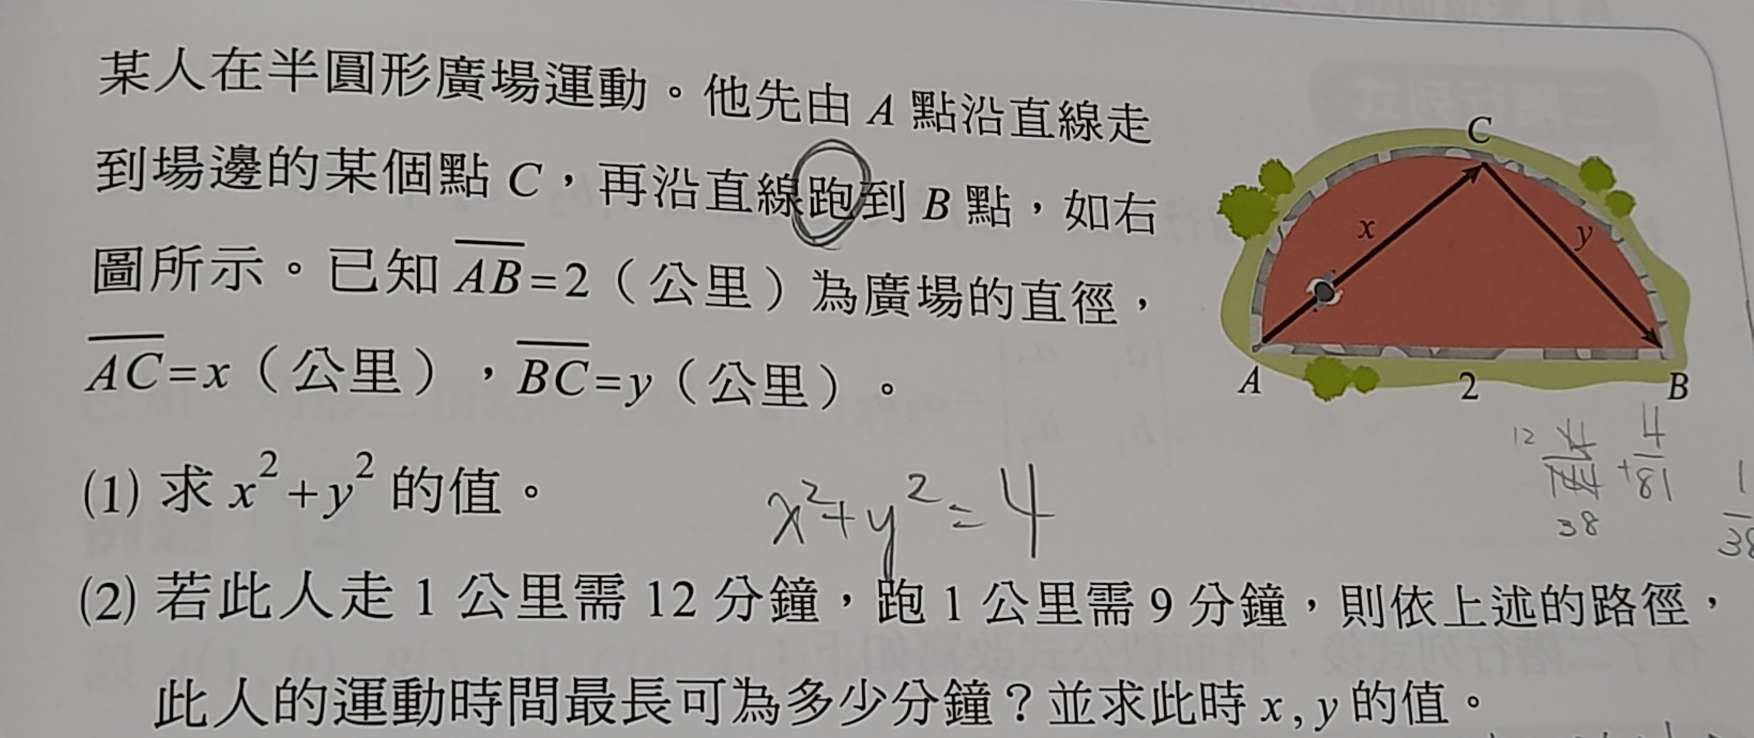 某人在半圓形廣場運動。他先由 A 點沿直線走
到場邊的某個點 C，再沿直線跑到 B 點，如右
圖所示。已知 \overline{AB}=2（公里）為廣場的直徑，
\overline{AC}=x（公里），\overline{BC}=y（公里）。
C
x
y
A
2
B
(1) 求 x²+y² 的值。
x²+y²=4
12
4
+
81
144
38
1
38
(2) 若此人走 1 公里需 12 分鐘，跑 1 公里需 9 分鐘，則依上述的路徑，
此人的運動時間最長可為多少分鐘？並求此時 x , y 的值。